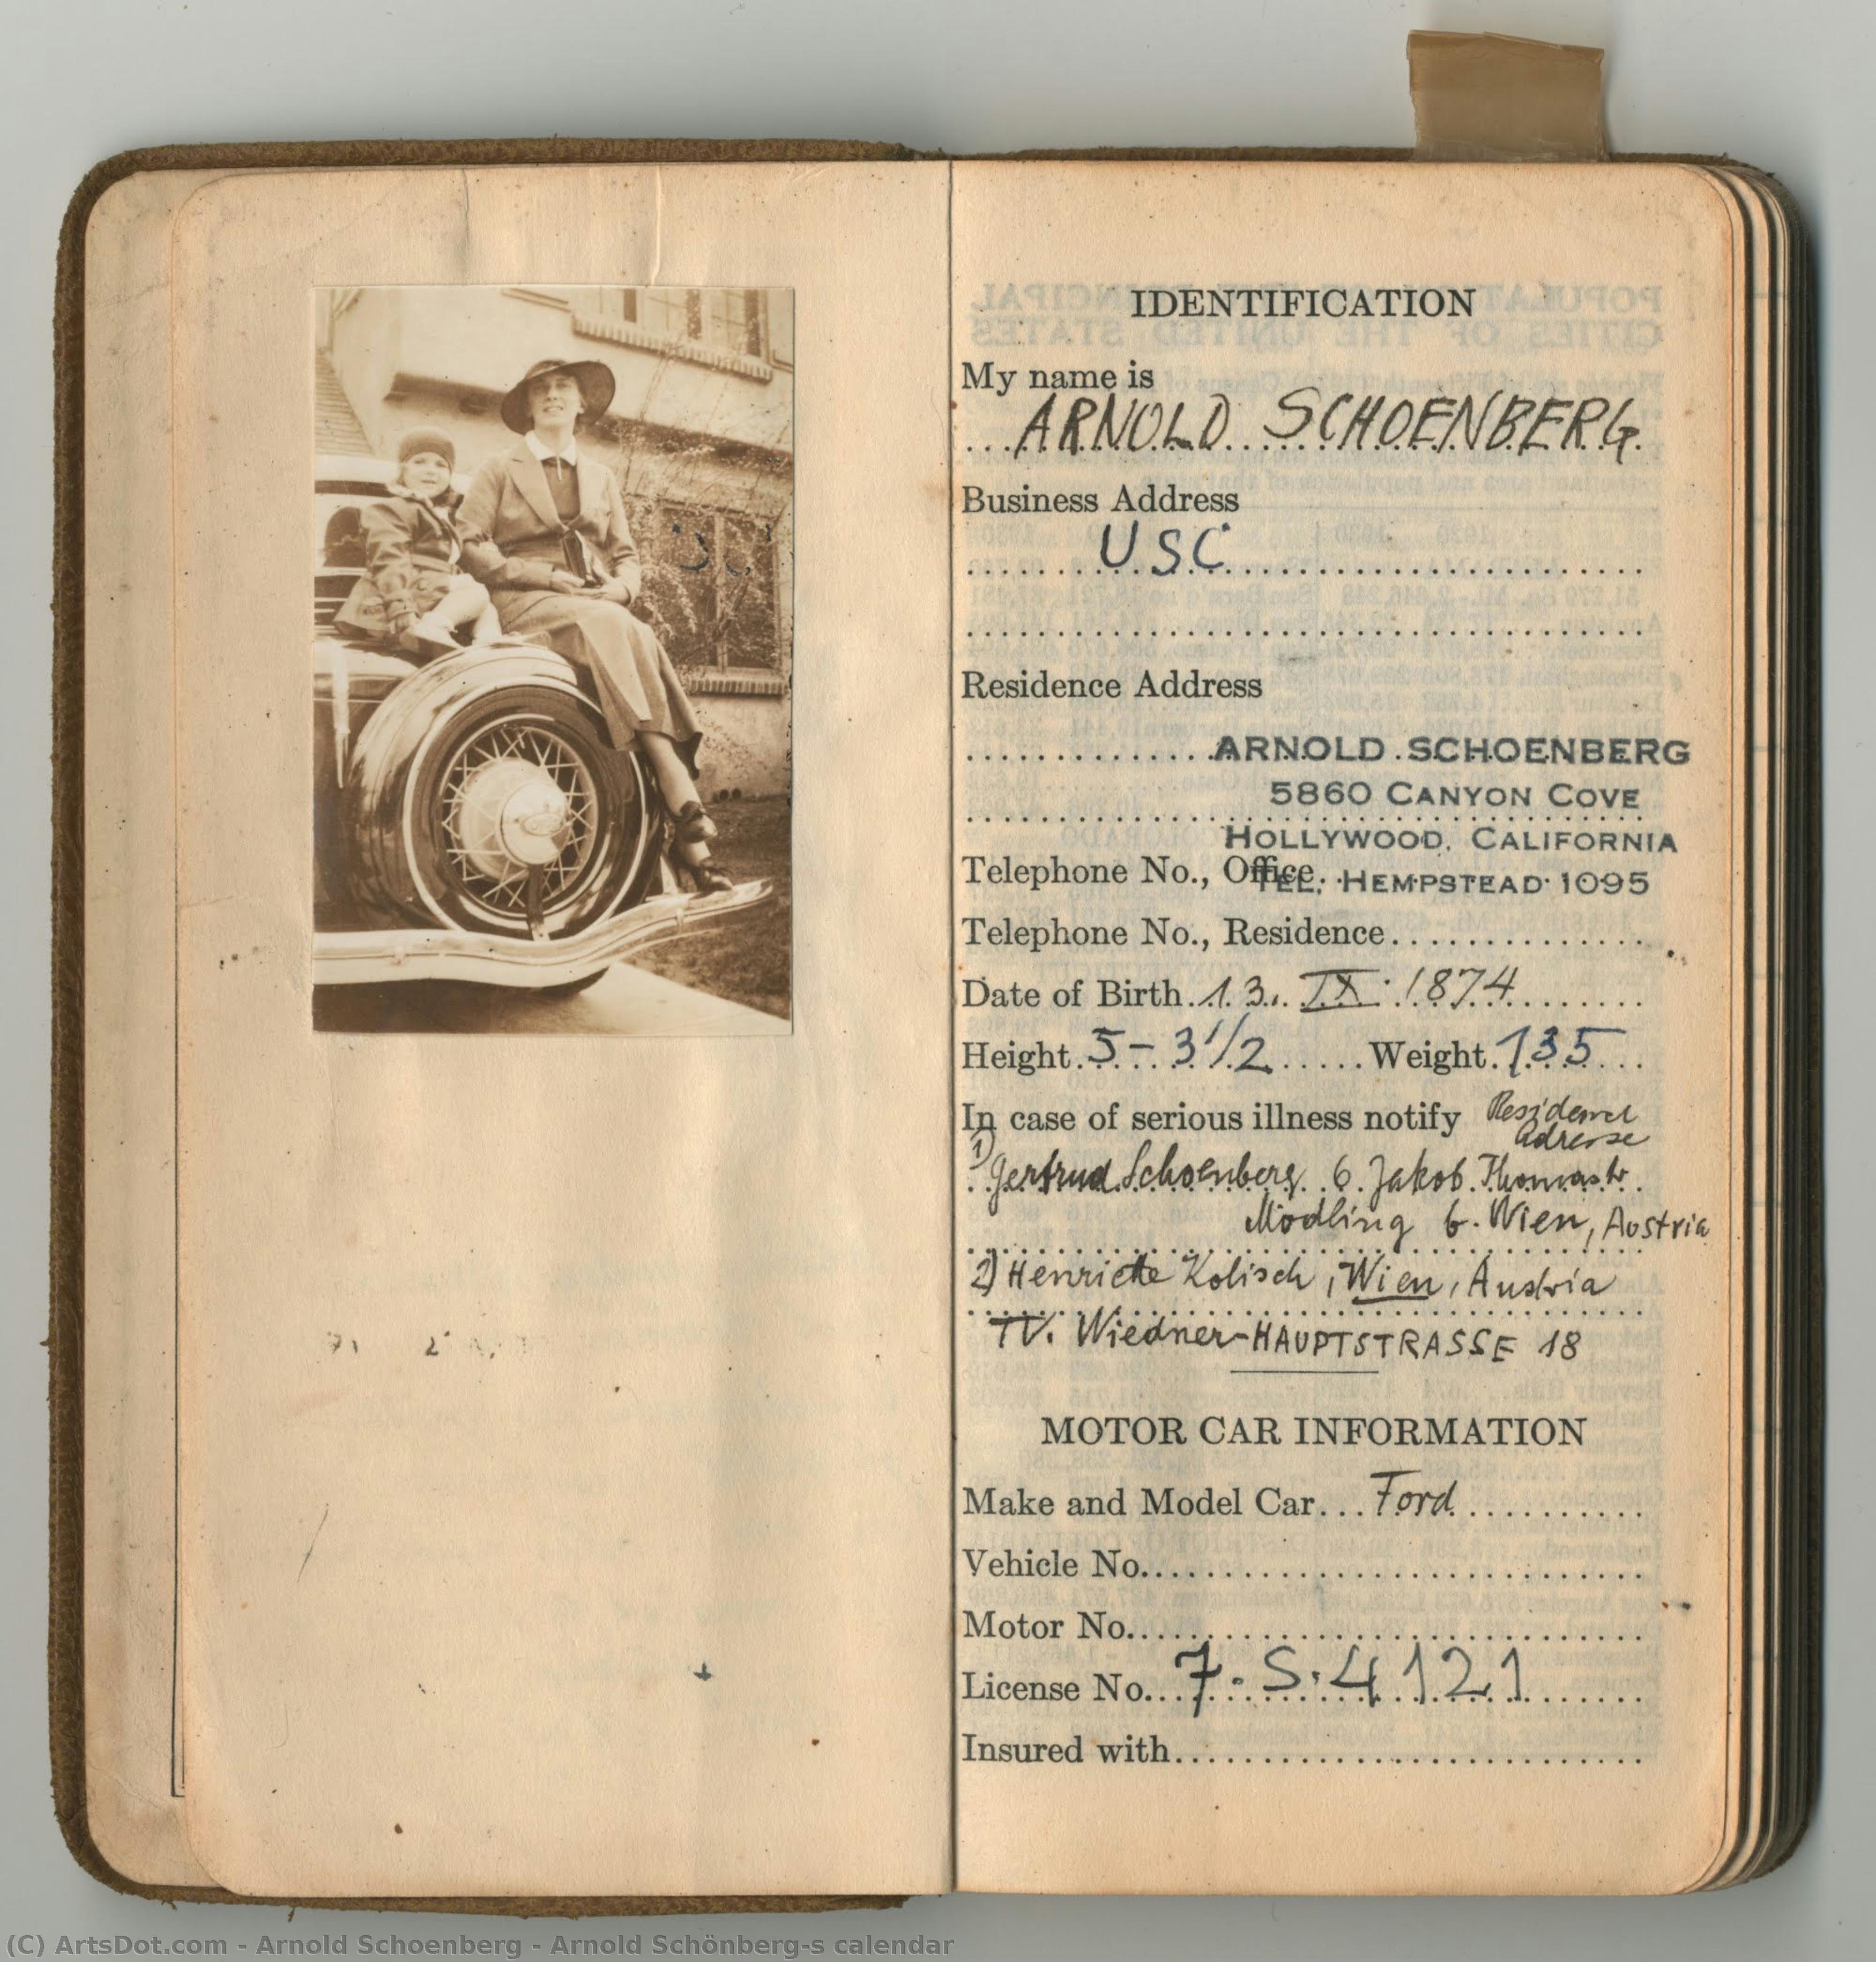 IDENTIFICATION
My name is
ARNOLD SCHOENBERG
Business Address
USC
Residence Address
ARNOLD SCHOENBERG
5860 CANYON COVE
HOLLYWOOD, CALIFORNIA
Telephone No., Office TEL. HEMPSTEAD 1095
Telephone No., Residence
Date of Birth 13. IX. 1874
Height 5-3 1/2 Weight 135
In case of serious illness notify Residence
Adresse
1) Gertrud Schoenberg 6 Jakob Thomastr
Mödling b. Wien, Austria
2) Henriette Kolisch, Wien, Austria
IV. Wiedner-HAUPTSTRASSE 18
MOTOR CAR INFORMATION
Make and Model Car Ford
Vehicle No.
Motor No.
License No. 7·S·4121
Insured with
(C) ArtsDot.com - Arnold Schoenberg - Arnold Schönberg-s calendar